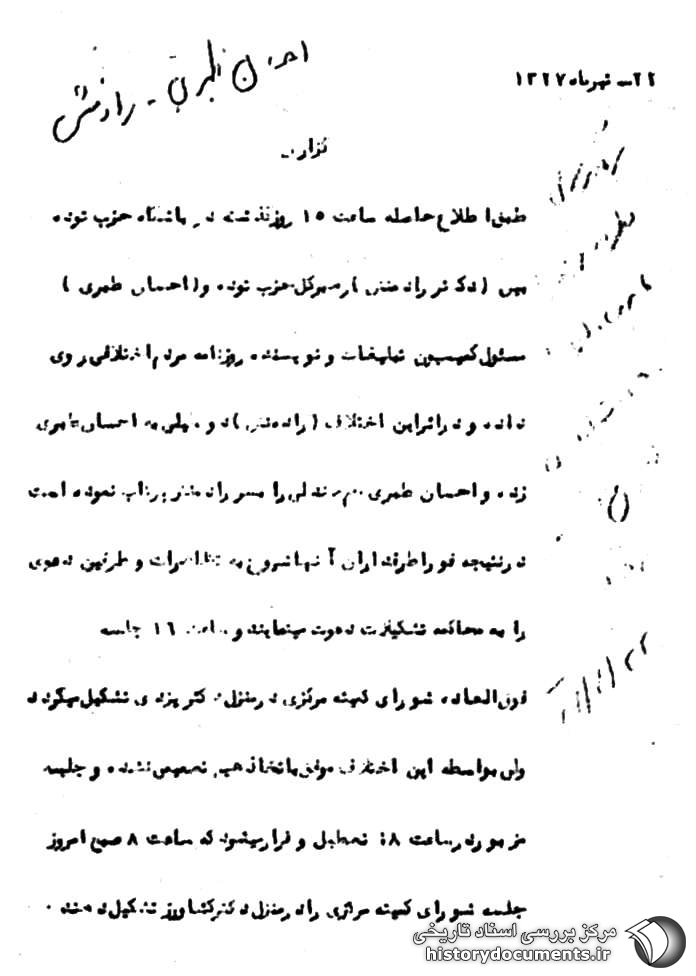 ۲۲ـ شهریور ماه ۱۳۲۷
احسان طبری - رادمنش
گزارش
طبق اطلاع حاصله ساعت ۱۵ روز گذشته در باشگاه حزب توده
بین (دکتر رادمنش) رهبر کل حزب توده و (احسان طبری)
مسئول کمیسیون تبلیغات و نویسنده روزنامه مردم اختلافی روی
داده و در اثر این اختلاف (رادمنش) دو سیلی به احسان طبری
زده و احسان طبری هم صندلی را بسر رادمنش پرتاب نموده است
در نتیجه فورا طرفداران آنها شروع به تظاهرات و طرفین دعوی
را به محاکمه تشکیلات دعوت مینمایند و ساعت ۱۶ جلسه
فوق العاده شورای کمیته مرکزی در منزل دکتر یزدی تشکیل میگردد
ولی بواسطه این اختلاف موفق باتخاذ هیچ تصمیمی نشده و جلسه
مزبور در ساعت ۱۸ تعطیل و قرار میشود که ساعت ۸ صبح امروز
جلسه شورای کمیته مرکزی را در منزل دکتر کشاورز تشکیل دهند .
مرکز بررسی اسناد تاریخی
historydocuments.ir